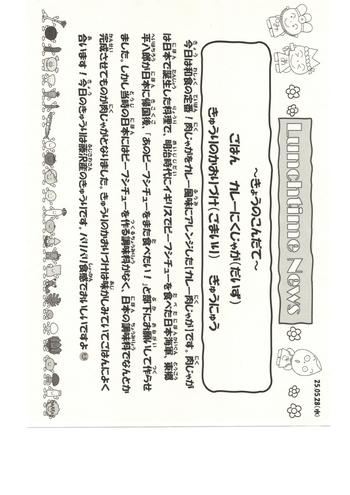 Lunchtime News
25.05.28(水)
～きょうのこんだて～
ごはん　カレーにくじゃが(だいず)
きゅうりのかおりづけ(ごまいり)　ぎゅうにゅう
今日は和食の定番！肉じゃがをカレー風味にアレンジした「カレー肉じゃが」です。肉じゃが
は日本で誕生した料理で、明治時代にイギリスでビーフシチューを食べた日本海軍、東郷
平八郎が日本に帰国後、「あのビーフシチューをまた食べたい！」と部下にお願いして作らせ
ました。しかし当時の日本にはビーフシチューを作る調味料がなく、日本の調味料でなんとか
完成させてものが肉じゃがとなりました。きゅうりのかおりづけは味がしみにいてごはんによく
合います！今日のきゅうりは藤沢産のきゅうりです。パリパリ食感でおいしいですよ😊